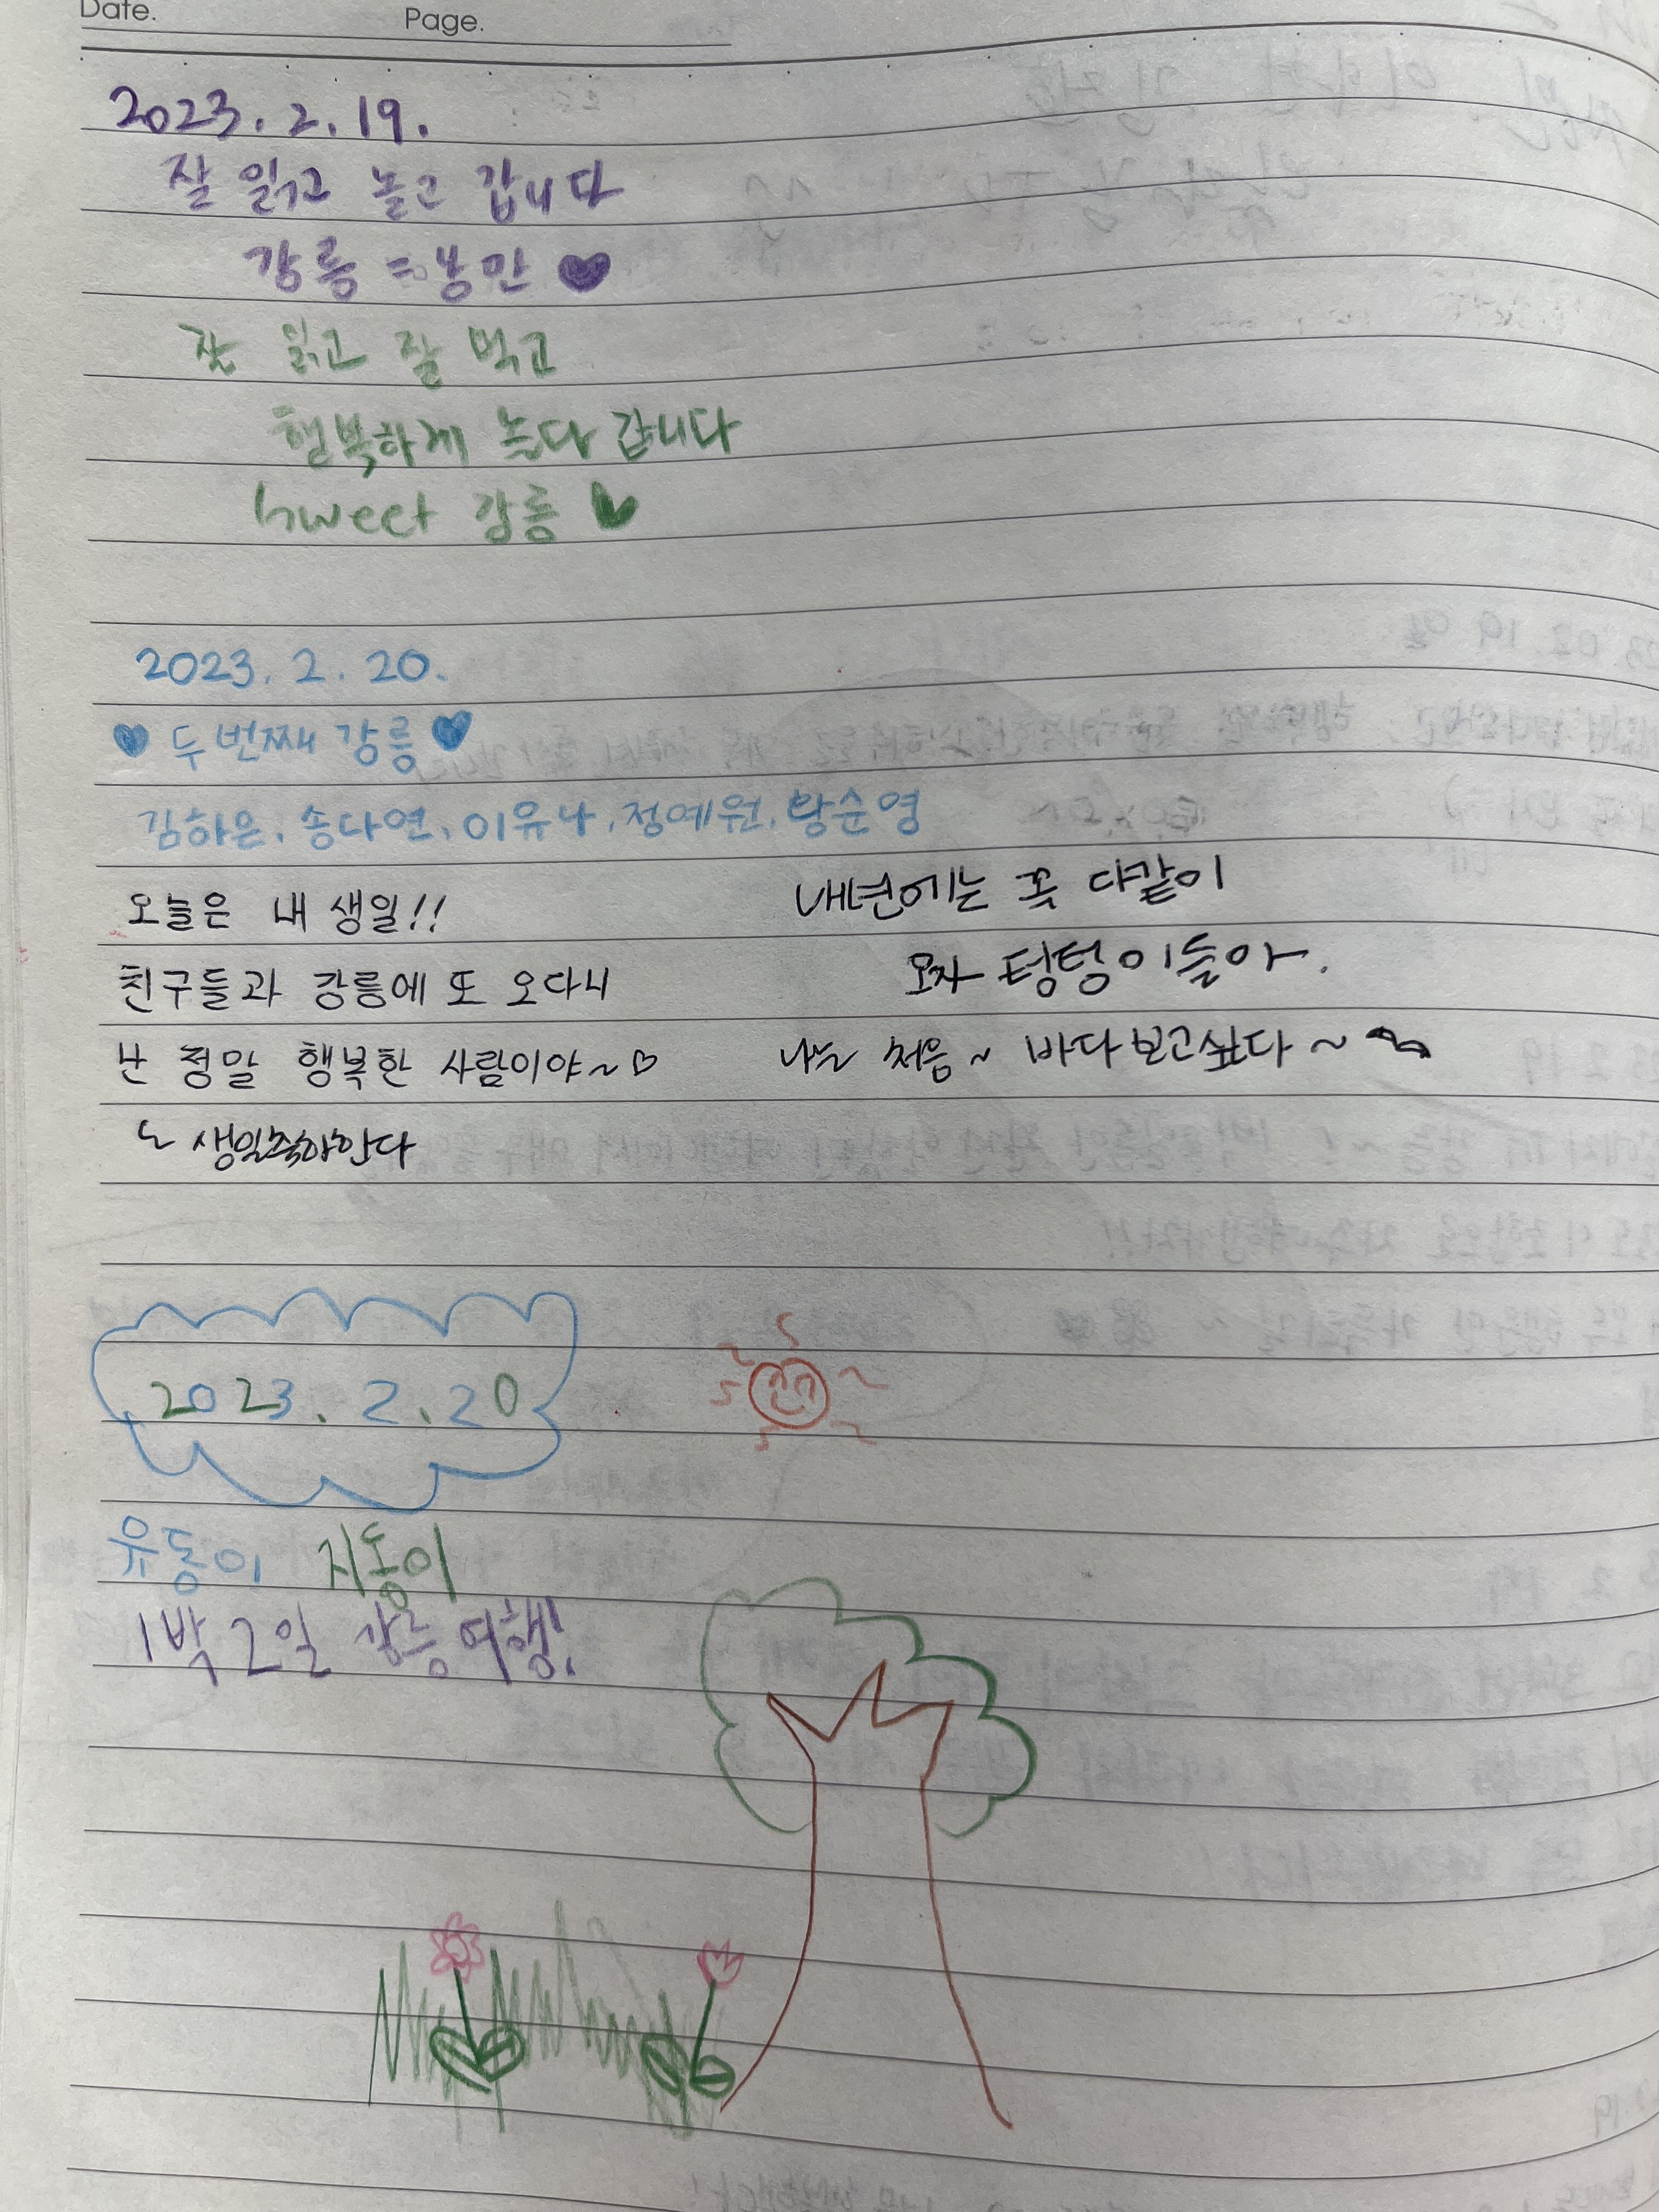 Date. Page.
2023. 2. 19.
잘 읽고 놀고 갑니다
강릉 = 낭만 ♥
잘 읽고 잘 먹고
행복하게 놀다 갑니다
Sweet 강릉 ♥
2023. 2. 20.
♥ 두번째 강릉 ♥
김하은, 송다연, 이유나, 정예원, 황순영
오늘은 내 생일!!
친구들과 강릉에 또 오다니
난 정말 행복한 사람이야~♡
ㄴ 생일축하한다
내년에는 꼭 다같이
모자 텅텅이들아.
나는 처음~ 바다보고싶다~
2023. 2. 20
유동이 지동이
1박 2일 강릉여행!